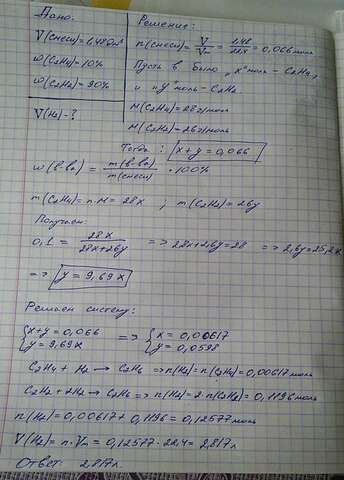 Дано:
V(смеси)=1,48 дм³
ω(C2H4)=10%
ω(C2H2)=90%
V(H2)-?
Решение:
n(смеси)= V/Vm = 1,48/22,4 = 0,066 моль
Пусть в было „x" моль - C2H4,
и „y" моль - C2H2.
M(C2H4)=28 г/моль
M(C2H2)=26 г/моль
Тогда: x+y=0,066
ω(в-ва) = m(в-ва)/m(смеси) · 100%
m(C2H4)=n·M= 28x ; m(C2H2)=26y
Получаем:
0,1 = 28x/28x+26y => 28x+26y=28 => 2,6y=25,2x
=> y = 9,69x
Решаем систему:
{x+y=0,066 {y=9,69x => {x=0,00617 {y=0,0598
C2H4 + H2 → C2H6 => n(H2)=n(C2H4)=0,00617 моль
C2H2 + 2H2 → C2H6 => n(H2)=2·n(C2H2)=0,1196 моль
n(H2)=0,00617+0,1196=0,12577 моль
V(H2)=n·Vm=0,12577·22,4=2,817л
Ответ: 2,817л.